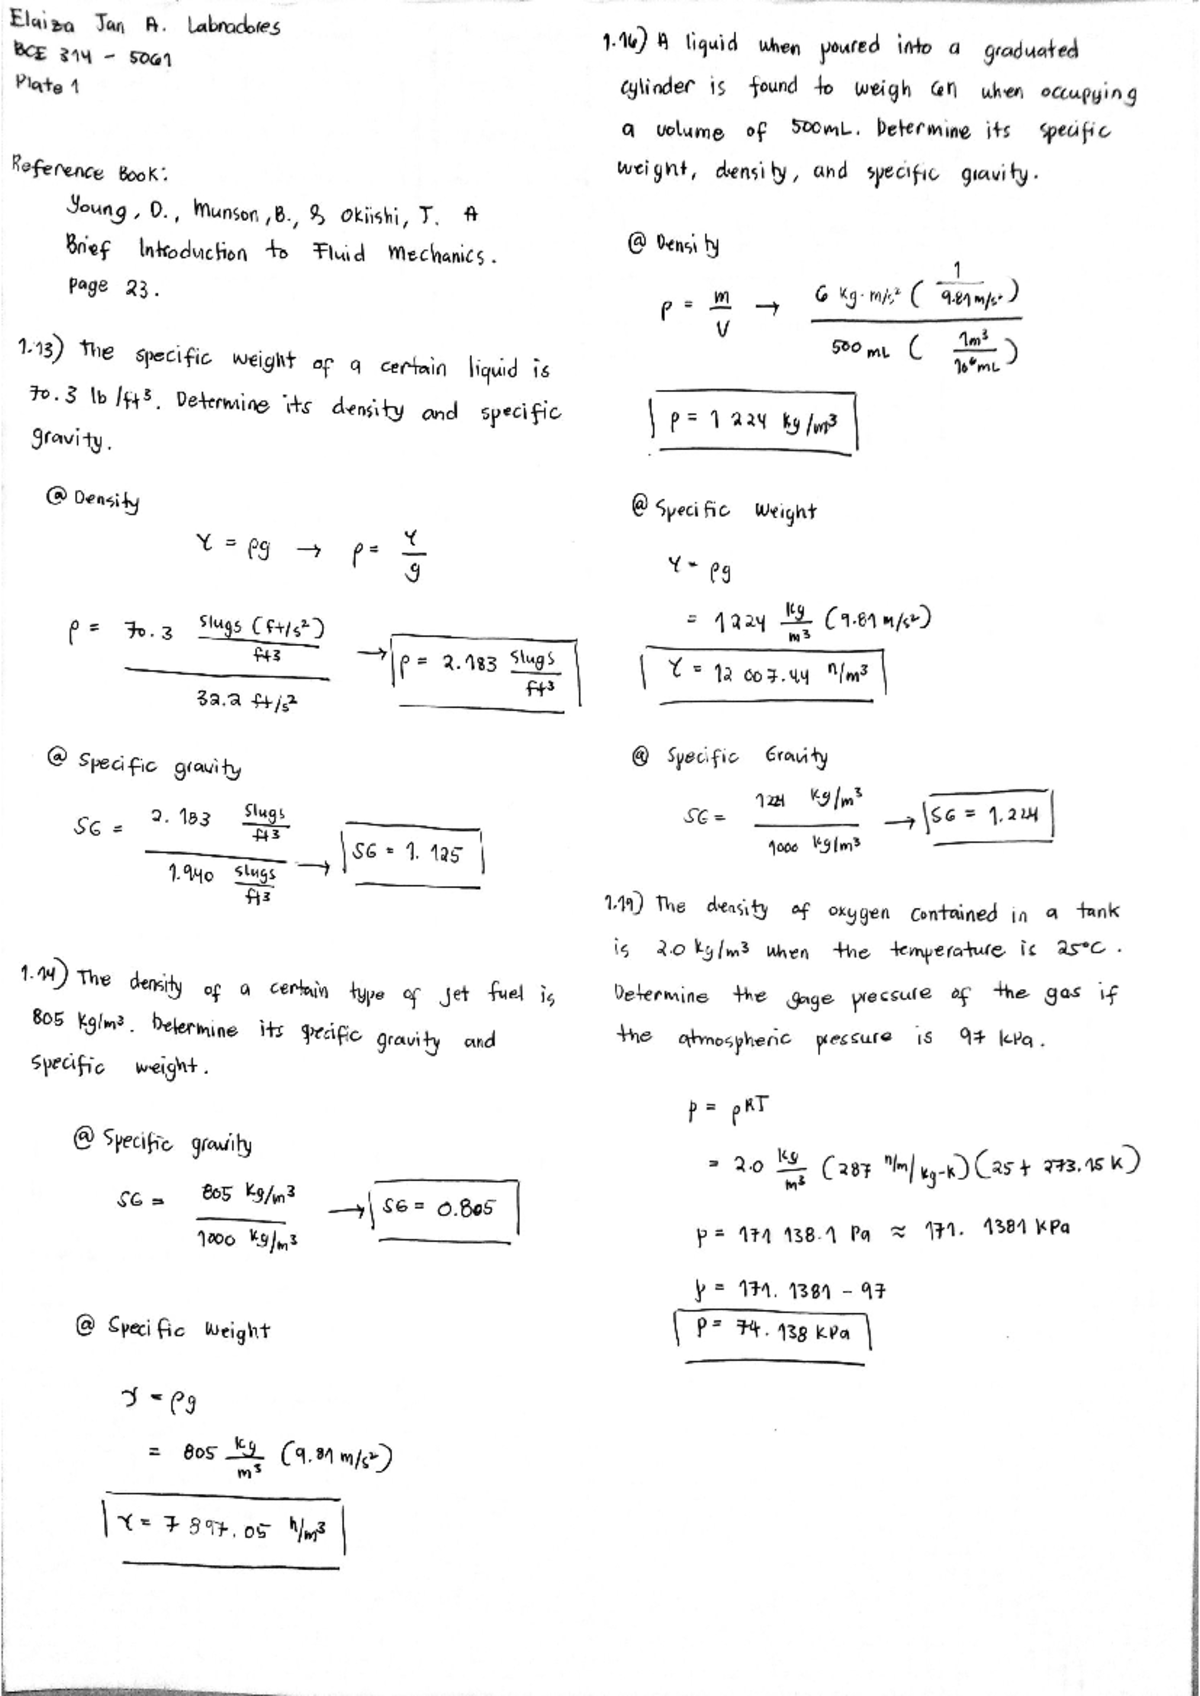 Elaiza Jan A. Labradores
BCE 314 - 5061
Plate 1
Reference Book:
Young, D., Munson, B., & Okiishi, T. A
Brief Introduction to Fluid Mechanics.
page 23.
1.13) The specific weight of a certain liquid is
70.3 lb/ft³. Determine its density and specific
gravity.
@ Density
γ = ρg → ρ = γ/g
ρ = 70.3 slugs (ft/s²)/ft³ / 32.2 ft/s² → ρ = 2.183 slugs/ft³
@ Specific gravity
SG = 2.183 slugs/ft³ / 1.940 slugs/ft³ → SG = 1.125
1.14) The density of a certain type of jet fuel is
805 kg/m³. Determine its specific gravity and
specific weight.
@ Specific gravity
SG = 805 kg/m³ / 1000 kg/m³ → SG = 0.805
@ Specific Weight
γ = ρg
= 805 kg/m³ (9.81 m/s²)
γ = 7 897.05 N/m³
1.16) A liquid when poured into a graduated
cylinder is found to weigh 6N when occupying
a volume of 500mL. Determine its specific
weight, density, and specific gravity.
@ Density
ρ = m/V → 6 kg·m/s² (1/9.81 m/s²) / 500 mL (1m³/10⁶mL)
ρ = 1 224 kg/m³
@ Specific Weight
γ = ρg
= 1224 kg/m³ (9.81 m/s²)
γ = 12 007.44 N/m³
@ Specific Gravity
SG = 1224 kg/m³ / 1000 kg/m³ → SG = 1.224
1.19) The density of oxygen contained in a tank
is 2.0 kg/m³ when the temperature is 25°C.
Determine the gage pressure of the gas if
the atmospheric pressure is 97 kPa.
p = ρRT
= 2.0 kg/m³ (287 N/m/kg-K)(25 + 273.15 K)
p = 171 138.1 Pa ≈ 171.1381 kPa
p = 171.1381 - 97
p = 74.138 kPa